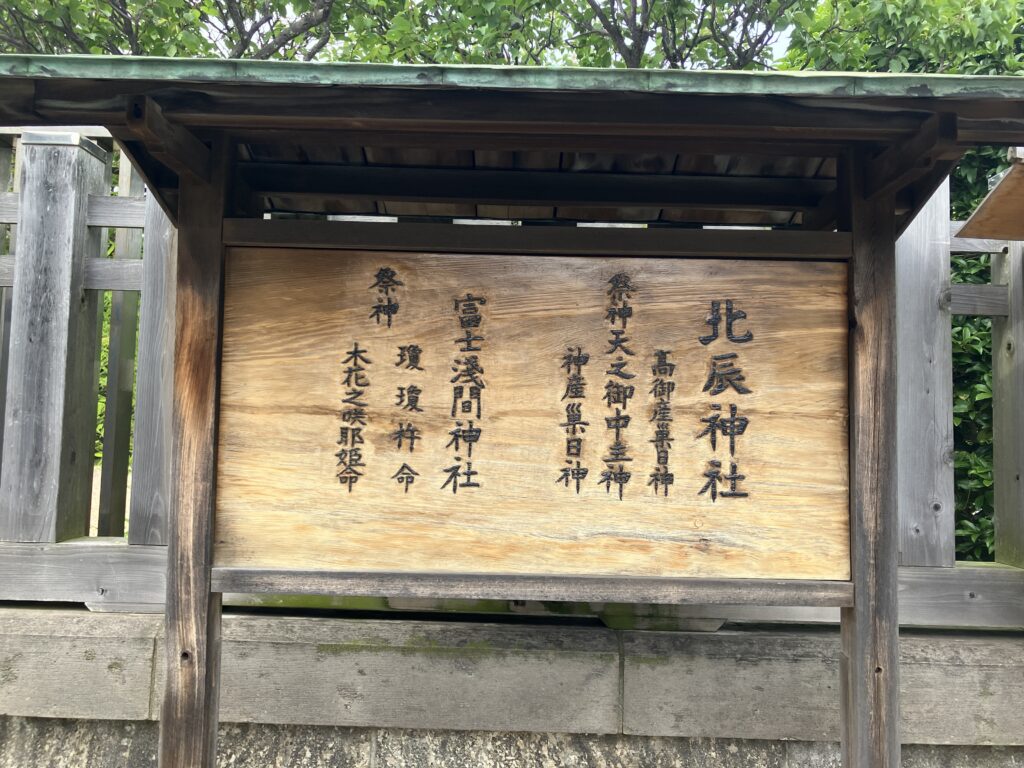 北辰神社
高御産巣日神
祭神天之御中主神
神産巣日神
富士淺間神社
祭神
瓊瓊杵命
木花之咲耶姫命